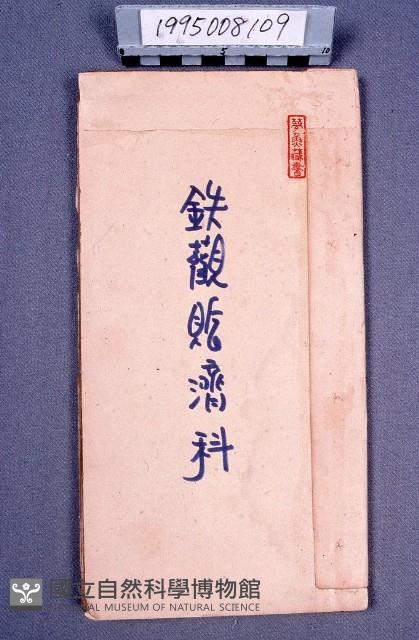 1995008109
5
10
鉄觀貯濟科
國立自然科學博物館
NATIONAL MUSEUM OF NATURAL SCIENCE